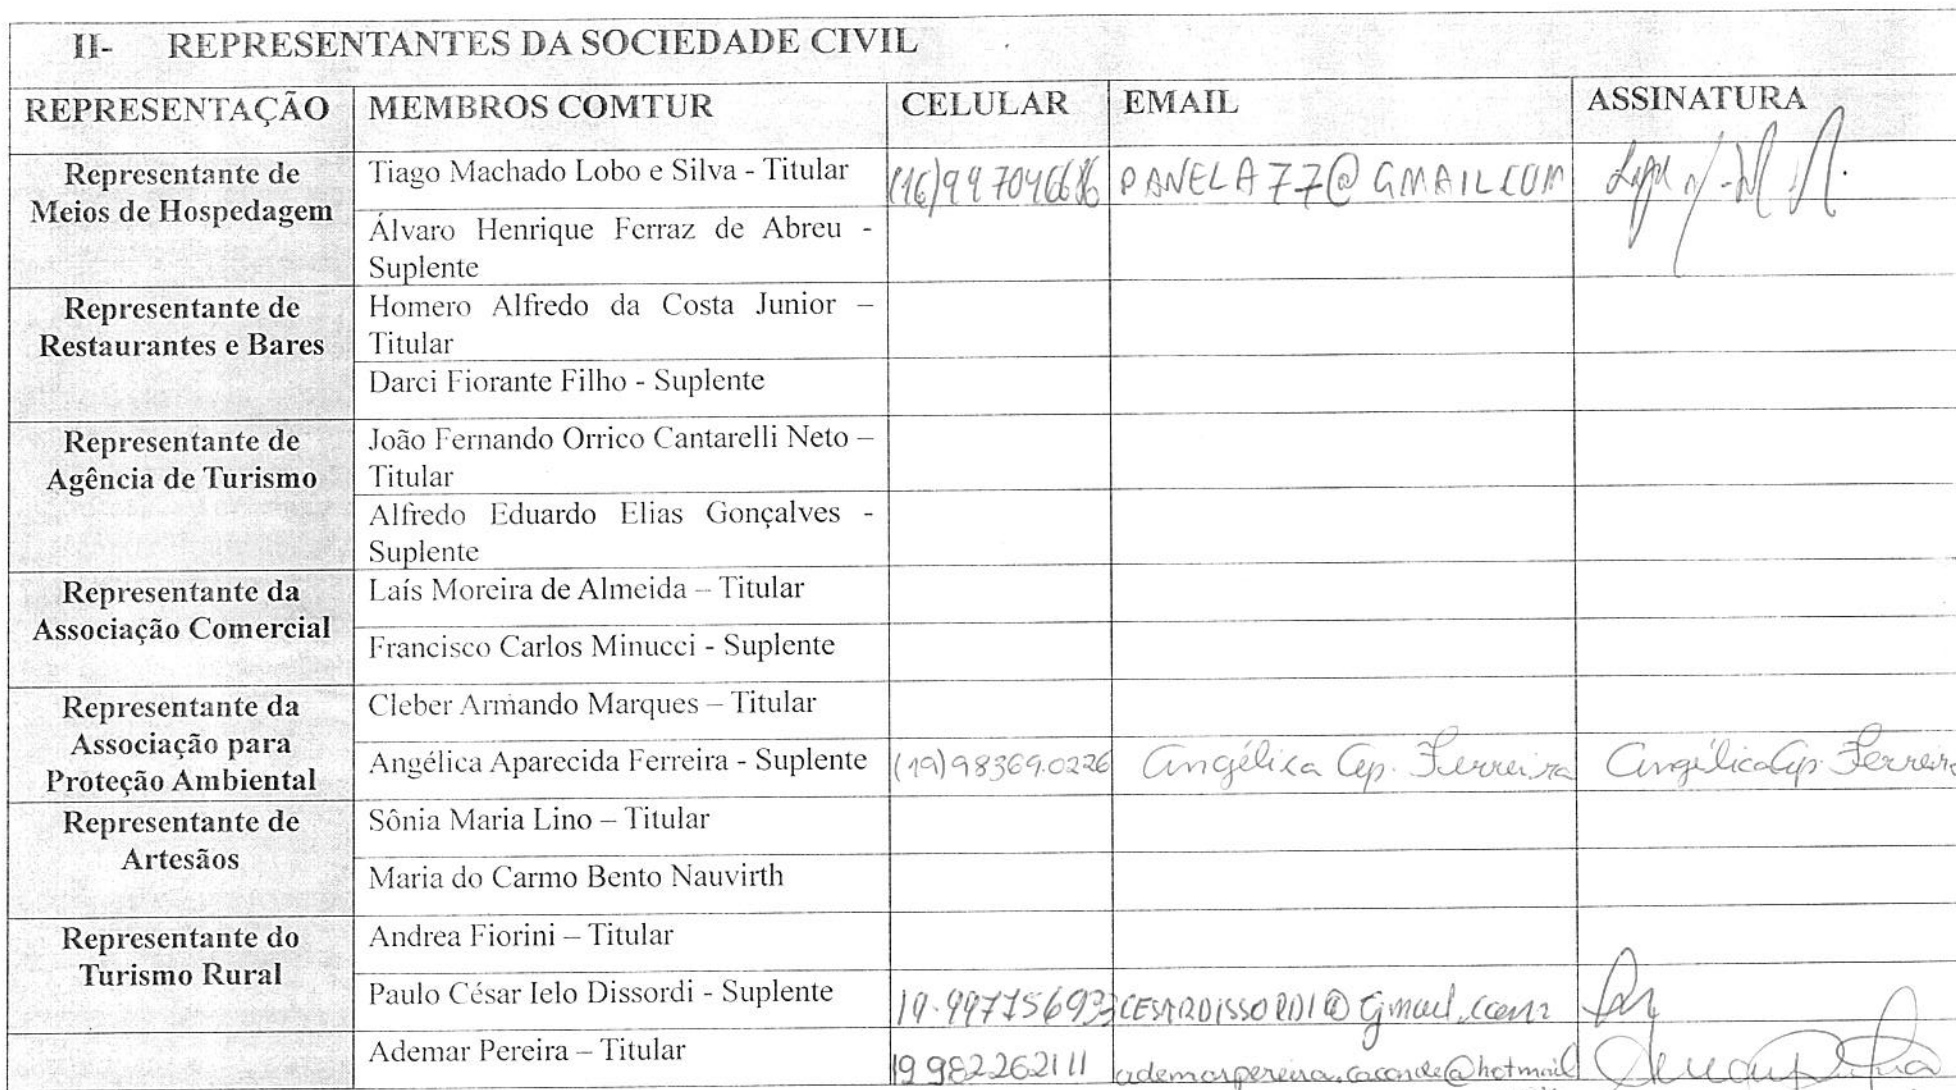 II- REPRESENTANTES DA SOCIEDADE CIVIL
REPRESENTAÇÃO MEMBROS COMTUR CELULAR EMAIL ASSINATURA
Representante de
Meios de Hospedagem
Tiago Machado Lobo e Silva - Titular PANELA77@GMAIL.COM
Álvaro Henrique Ferraz de Abreu -
Suplente
Representante de
Restaurantes e Bares
Homero Alfredo da Costa Junior –
Titular
Darci Fiorante Filho - Suplente
Representante de
Agência de Turismo
João Fernando Orrico Cantarelli Neto –
Titular
Alfredo Eduardo Elias Gonçalves -
Suplente
Representante da
Associação Comercial
Laís Moreira de Almeida – Titular
Francisco Carlos Minucci - Suplente
Representante da
Associação para
Proteção Ambiental
Cleber Armando Marques – Titular
Angélica Aparecida Ferreira - Suplente (19)98369.0226 Angélica Ap. Ferreira Angélica Ap. Ferreira
Representante de
Artesãos
Sônia Maria Lino – Titular
Maria do Carmo Bento Nauvirth
Representante do
Turismo Rural
Andrea Fiorini – Titular
Paulo César Ielo Dissordi - Suplente 19.997756933 CESARDISSORDI@gmail.com
Ademar Pereira – Titular 19 982262111 ademarpereira.caconde@hotmail